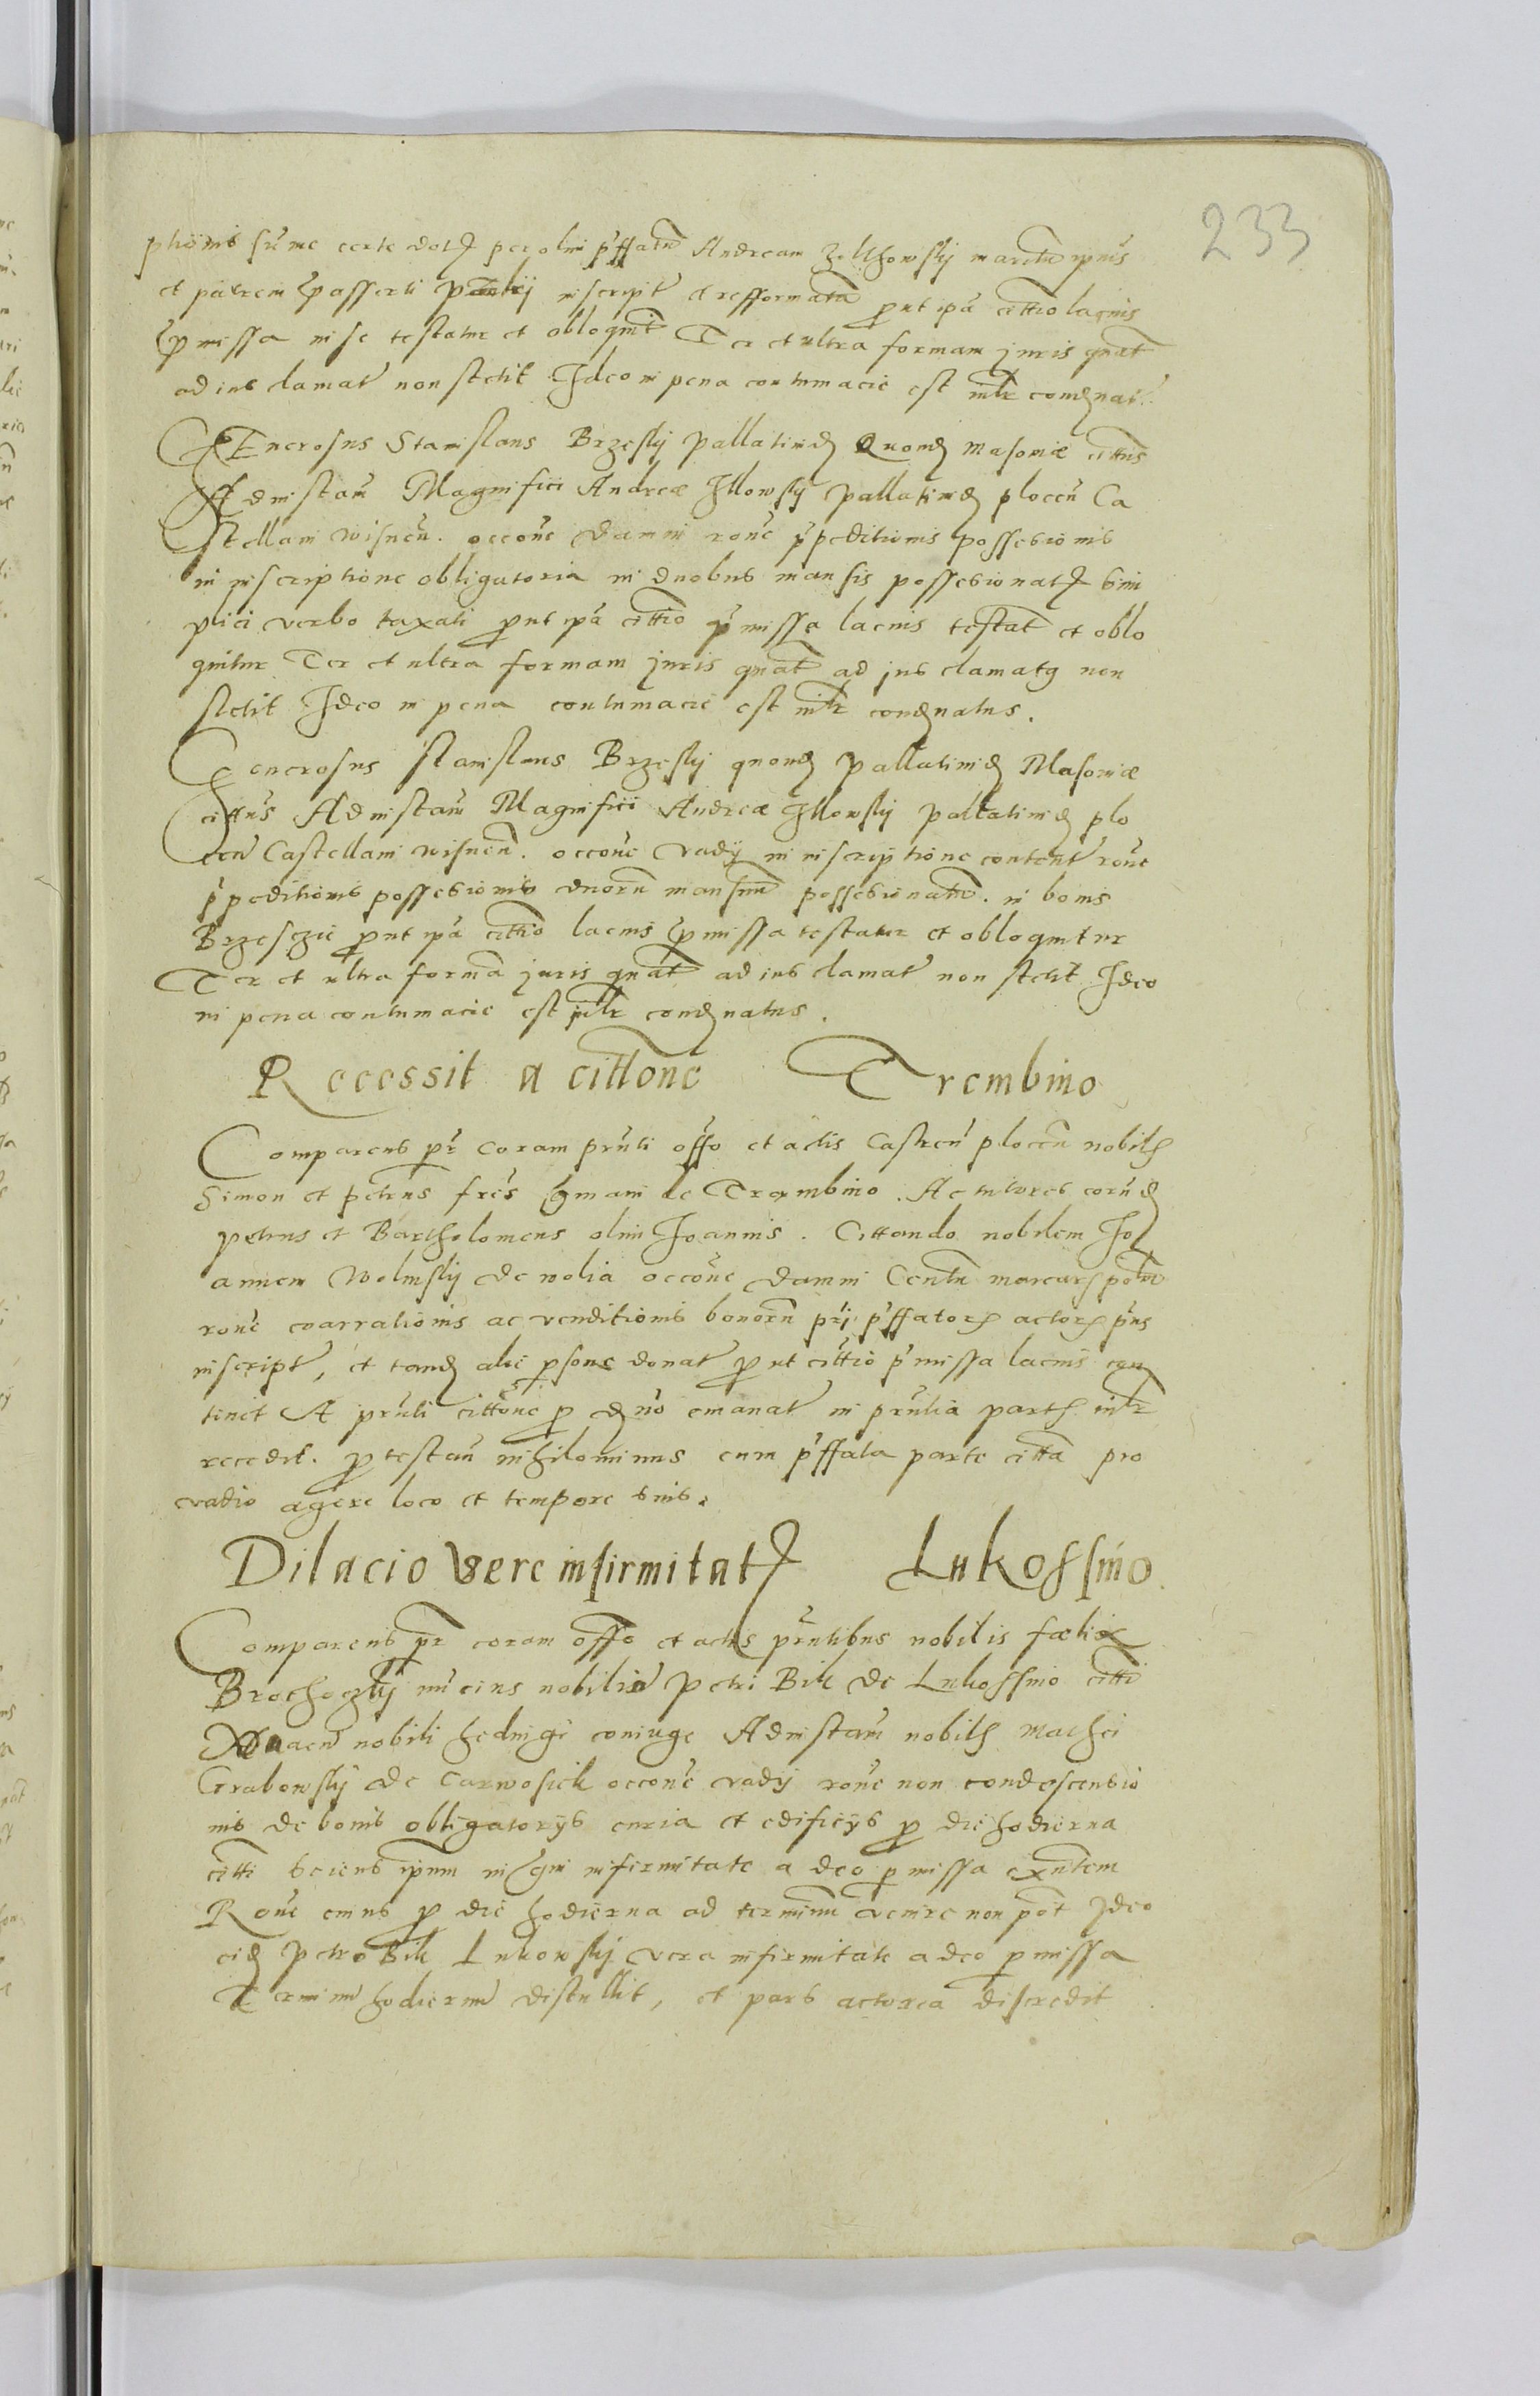 233
ptionis sume certe dotis per olim pffatu Andream Zolthowsky maritu ipius
et patrem passerti Pauli inscript et refformata put ipa cittio lacius
pmissa in se testatur et obloquit Ter et ultra formam juris quat
ad ius clamat non stetit Ideo in pena contumacie est mltr comdnat
GEnerosus Stanislaus Brzesky pallatinid Quond Masovie cittus
Ad instam Magnifici Andreæ Illowsky pallatinid plocen Ca
stellani wisnen. occone damni rone pᵃpeditionis possessionis
in inscriptione obligatoria in duobus mansis possessionat sim
plici verbo taxati put ipa cittio pmissa lacius testat et oblo
quitur Ter et ultra formam juris quat ad jus clamatq non
stetit Ideo in pena contumacie est mltr condnatus.
Generosus Stanislaus Brzesky quond pallatinid Masoviæ
cittus Ad instam Magnifici Andreæ Illowsky pallatinid plo
cen Castellani wisnen. occone vadij in inscriptione content rone
pᵃpeditionis possessionis duoru mansuu possessionatu. in bonis
Brzesczie put ipa cittio lacius pmissa testatur et obloquitur
Ter et ultra forma juris quat ad ius clamat non stetit Ideo
in pena contumacie est mltr condnatus.
Recessit a cittone Trembino
Comparens pr coram pnti offo et actis Castren plocen nobils
Simon et petrus fres gmani de Trembino. Ac tutores eorud
petrus et Bartholomeus olim Joannis. Cittando nobilem Jo
annem Wolinsky de wolia occone damni Centu marcars polm
rone coarrationis ac venditionis bonoru prij pffators actors pus
inscript, et tand alie psone donat put cittio pmissa lacius con
tinet A pnti cittone p dno emanat in pntia parts mltr
recedit. ptestan nihilominus cum pffata parte citta pro
vadio agere loco et tempore suis.
Dilacio vere infirmitatis Lukossino
Comparens pr coram offo et actis pntibus nobilis fœlix
Brochoczky nucius nobiliu Petri Bik de Lukossino citti
Unacu nobili hedvigi coniuge Ad instam nobils Mathei
Grabowsky de Carwosick occone vadij rone non condescensio
nis de bonis obligatorijs curia et edificijs p die hodierna
citti sciens ipum in gni infirmitate a deo pmissa exntem
Rone cuius p die hodierna ad terminu venire non pot Ideo
eid Petro Bik Lukowsky vera infirmitate a deo pmissa
Terminu hodiernu distullit, et pars actorea discredit